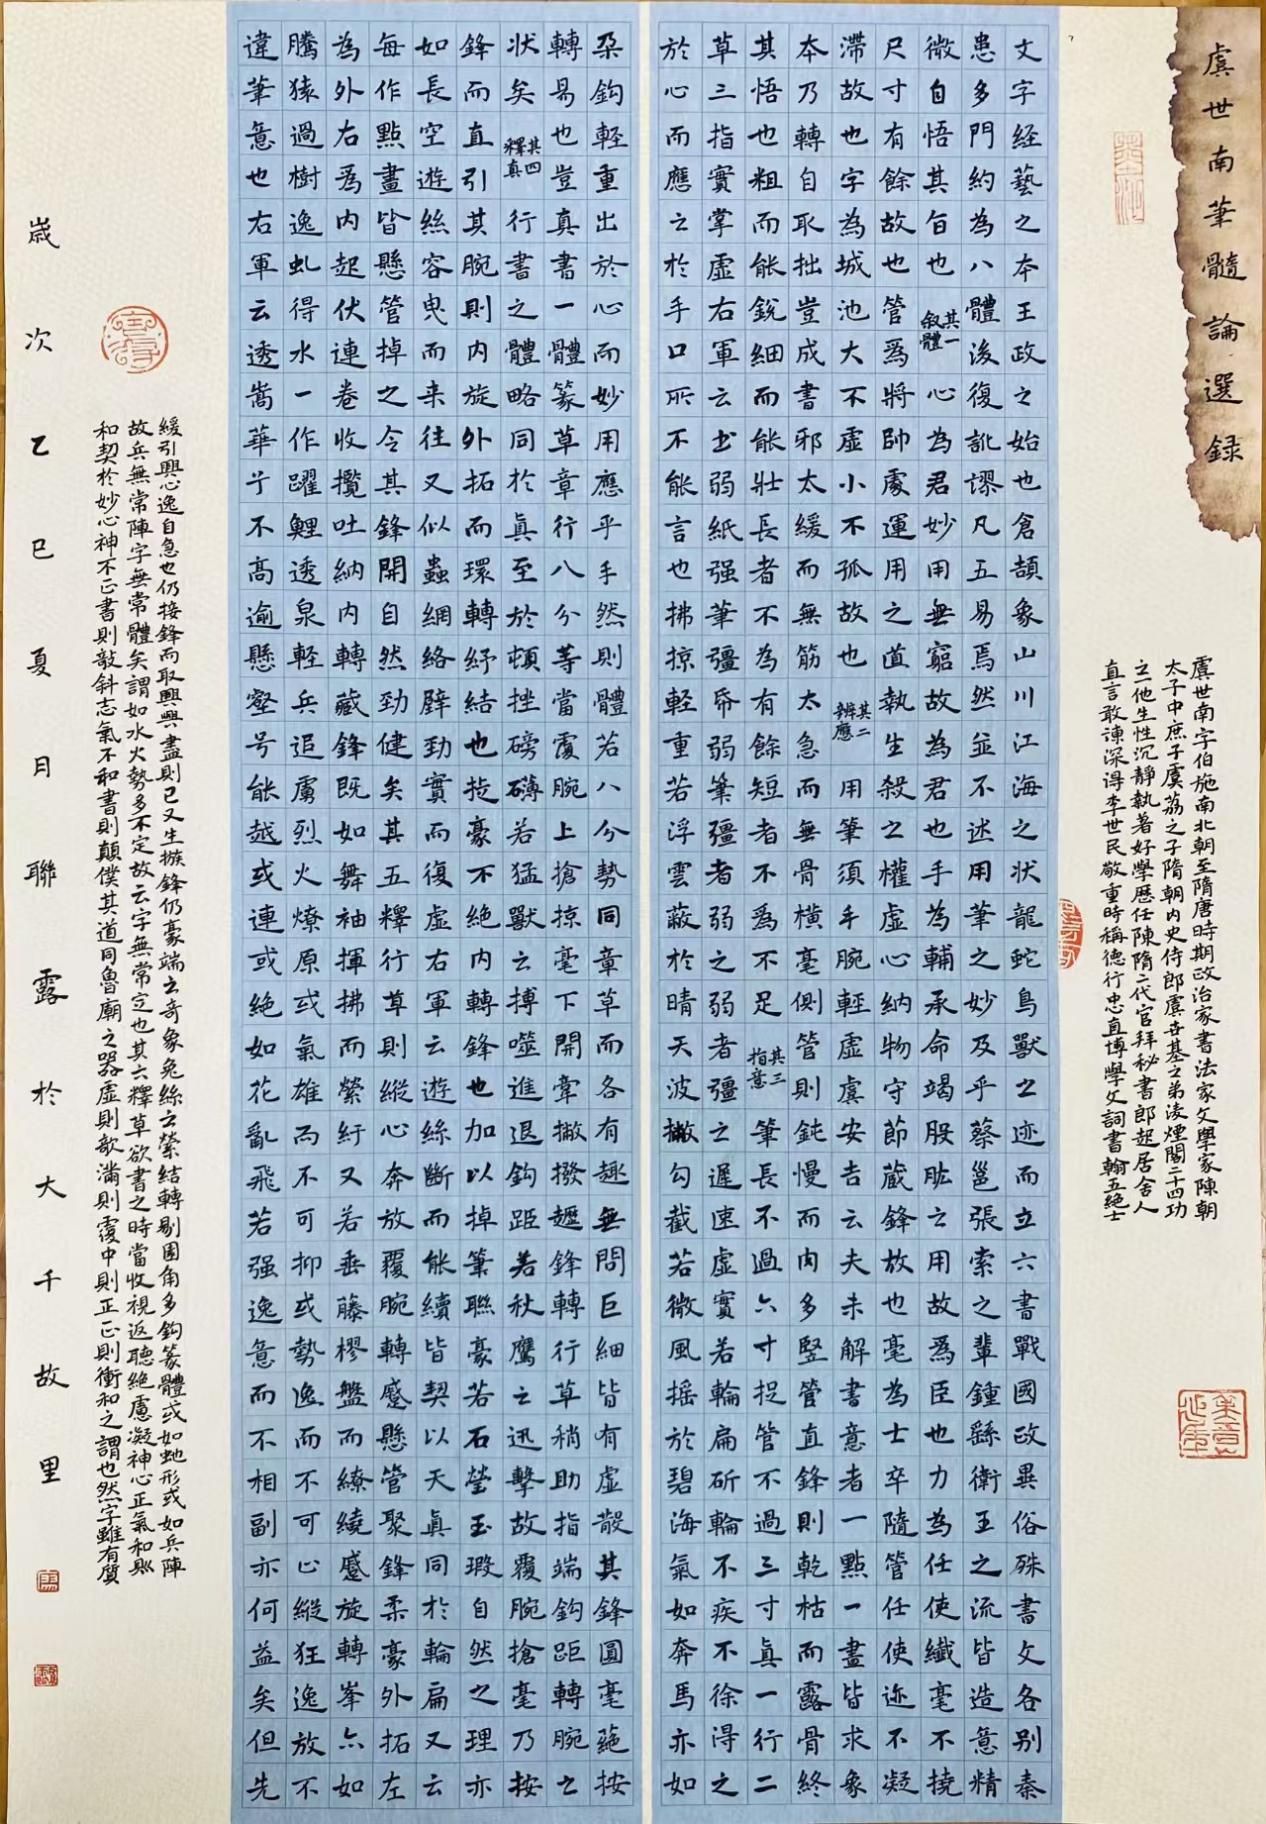 虞世南筆髓論選録
虞世南字伯施南北朝至隋唐時期政治家書法家文學家陳朝
太子中庶子虞荔之子隋朝内史侍郎虞世基之弟淩煙閣二十四功
之一他生性沉静執著好學歷任陳隋二代官拜秘書郎起居舍人
直言敢諫深得李世民敬重時稱德行忠直博學文詞書翰五絶士
文字经藝之本王政之始也倉頡象山川江海之状龍蛇鳥獸之迹而立六書戰國政異俗殊書文各别秦
患多門約為八體後復訛謬凡五易焉然並不述用筆之妙及乎蔡邕張索之輩鍾繇衛王之流皆造意精
微自悟其旨也其一敘體心為君妙用無窮故為君也手為輔承命竭股肱之用故爲臣也力為任使纖毫不撓
尺寸有餘故也管爲將帥處運用之道執生殺之權虚心納物守節蔵鋒故也毫為士卒隨管任使迹不凝
滯故也字為城池大不虚小不孤故也其二辨應用筆須手腕輕虚虞安吉云夫未解書意者一點一畫皆求象
本乃轉自取拙豈成書邪太緩而無筋太急而無骨横毫側管則鈍慢而肉多竪管直鋒則乾枯而露骨終
其悟也粗而能銳細而能壯長者不為有餘短者不爲不足其三指意筆長不過六寸捉管不過三寸真一行二
草三指實掌虚右軍云书弱紙强筆彊帋弱筆彊者弱之弱者彊之遲速虚實若輪扁斫輪不疾不徐得之
於心而應之於手口所不能言也拂掠輕重若浮雲蔽於晴天波撇勾截若微風摇於碧海氣如奔馬亦如
朶鈎輕重出於心而妙用應乎手然則體若八分勢同章草而各有趣無問巨細皆有虚散其鋒圓毫蕝按
轉易也豈真書一體篆草章行八分等當覆腕上搶掠毫下開牽撇撥趯鋒轉行草稍助指端鈎距轉腕之
状矣其四釋真行書之體略同於真至於頓挫磅礴若猛獸之搏噬進退鈎距若秋鷹之迅擊故覆腕搶毫乃按
鋒而直引其腕則内旋外拓而環轉紓結也旋豪不絶内轉鋒也加以掉筆聯豪若石瑩玉瑕自然之理亦
如長空遊絲容曳而来往又似蟲網絡壁劲實而復虚右軍云遊絲斷而能續皆契以天真同於輪扁又云
每作點畫皆懸管掉之令其鋒開自然劲健矣其五釋行草則縱心奔放覆腕轉蹙懸管聚鋒柔豪外拓左
為外右為内起伏連卷收攬吐納内轉藏鋒既如舞袖揮拂而縈紆又若垂藤樛盤而繚繞蹙旋轉峯亦如
騰猿過樹逸虬得水一作躍鯉透泉輕兵追虜烈火燎原或氣雄而不可抑或勢逸而不可止縱狂逸放不
違筆意也右軍云透嵩華兮不高逾懸壑兮能越或連或絶如花亂飛若强逸意而不相副亦何益矣但先
緩引興心逸自急也仍接鋒而取興興盡則已又生撥鋒仍豪端之奇象兔絲之縈結轉剔圓角多鈎篆體或如虵形或如兵陣
故兵無常陣字無常體矣謂如水火勢多不定故云字無常定也其六釋草欲書之時當收視返聽絶慮凝神心正氣和則
和契於妙心神不正書則欹斜志氣不和書則顛僕其道同魯廟之器虚則欹滿則覆中則正正則衝和之謂也然字雖有質
歲次乙巳夏月聯露於大千故里